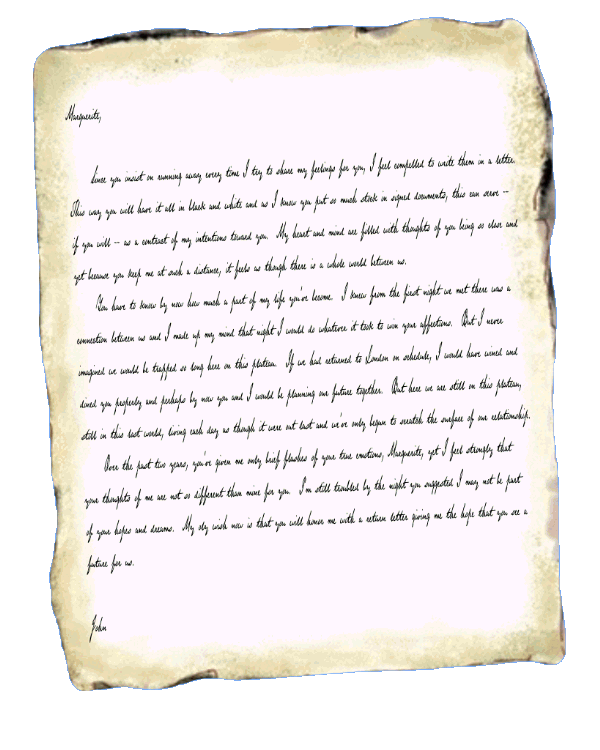 Marguerite,
Since you insist on running away every time I try to share my feelings for you, I feel compelled to write them in a letter.
This way you will have it all in black and white and as I know you put so much stock in signed documents, this can serve --
if you will -- as a contract of my intentions toward you. My heart and mind are filled with thoughts of you being so close and
yet because you keep me at such a distance, it feels as though there is a whole world between us.
You have to know by now how much a part of my life you've become. I knew from the first night we met there was a
connection between us and I made up my mind that night I would do whatever it took to win your affections. But I never
imagined we would be trapped so long here on this plateau. If we had returned to London on schedule, I would have wined and
dined you properly and perhaps by now you and I would be planning our future together. But here we are still on this plateau,
still in this lost world, living each day as though it were our last and we've only begun to scratch the surface of our relationship.
Over the past two years, you've given me only brief flashes of your true emotions, Marguerite, yet I feel strongly that
your thoughts of me are not so different than mine for you. I'm still troubled by the night you suggested I may not be part
of your hopes and dreams. My oly wish now is that you will honor me with a return letter giving me the hope that you see a
future for us.
John